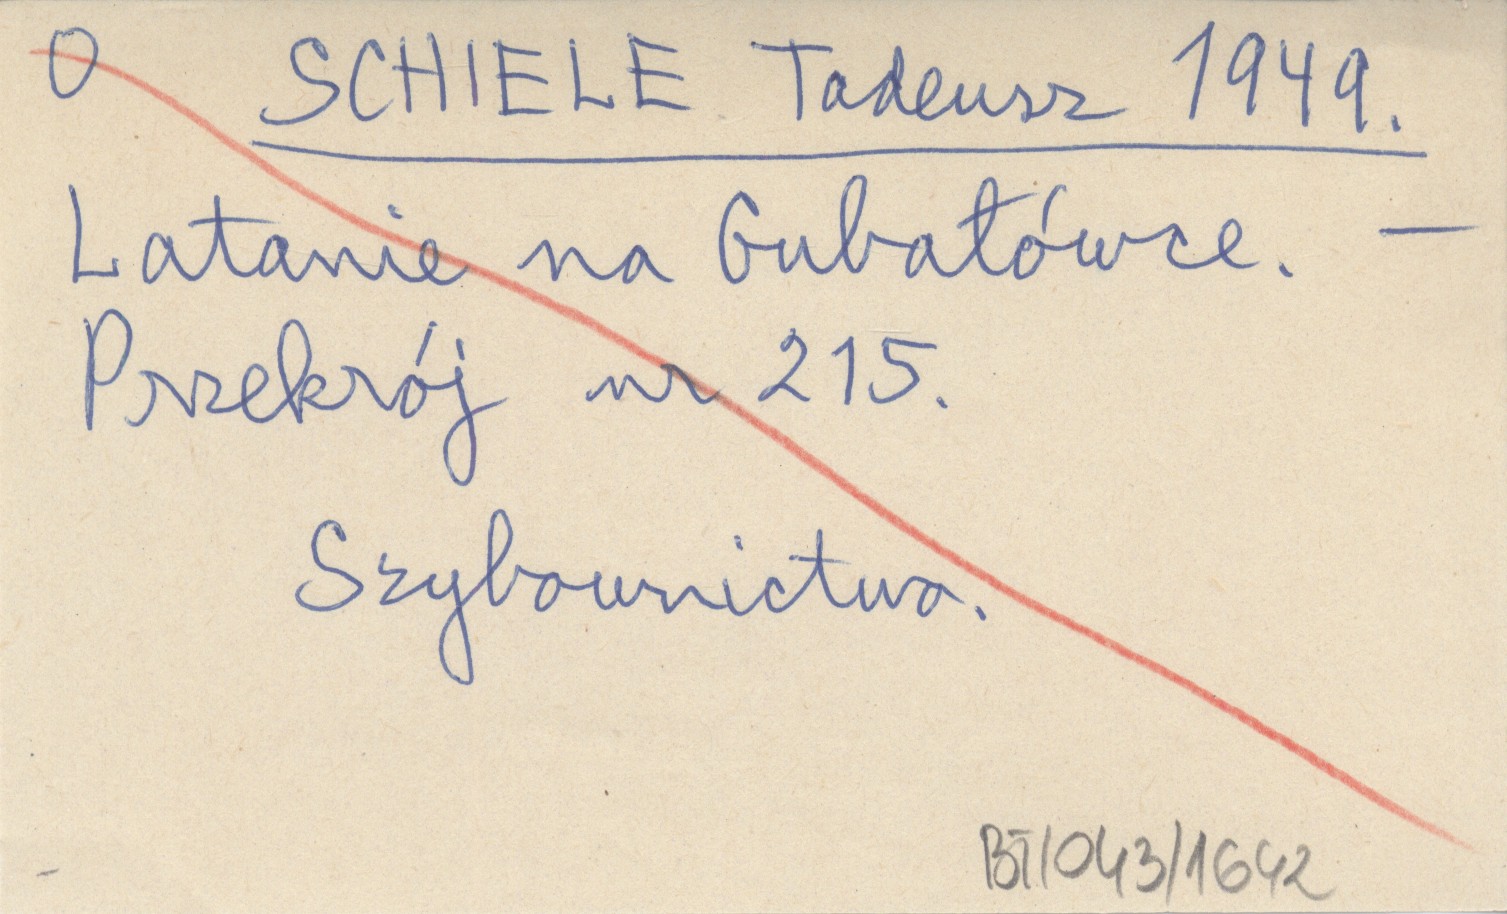 O SCHIELE Tadeusz 1949.
Latanie na Gubałówce. —
Przekrój nr 215.
Szybownictwo.
BT/043/1642